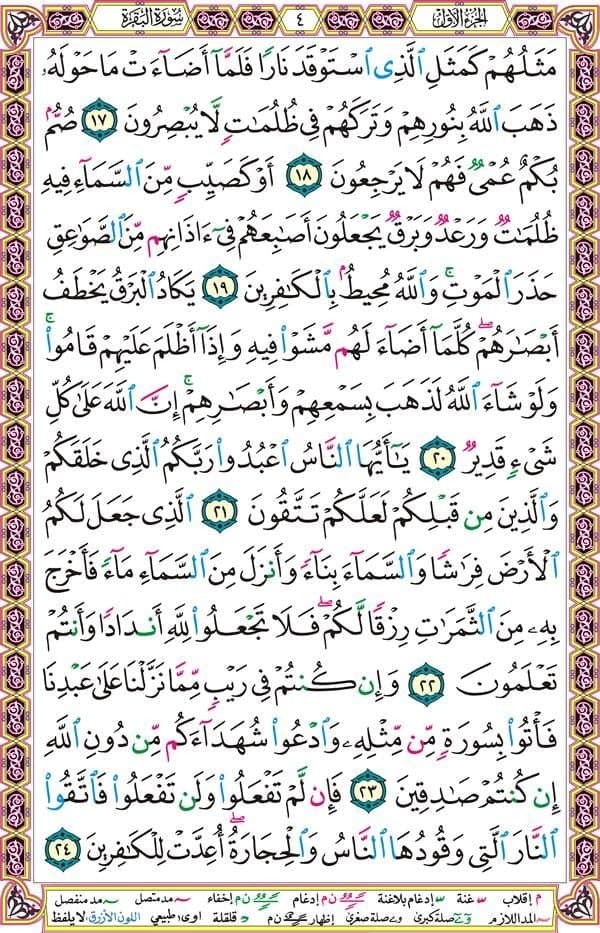 الجزء الأول ٤ سورة البقرة
مَثَلُهُمْ كَمَثَلِ ٱلَّذِى ٱسْتَوْقَدَ نَارًا فَلَمَّآ أَضَآءَتْ مَا حَوْلَهُۥ
ذَهَبَ ٱللَّهُ بِنُورِهِمْ وَتَرَكَهُمْ فِى ظُلُمَٰتٍ لَّا يُبْصِرُونَ ١٧ صُمٌّۢ
بُكْمٌ عُمْىٌ فَهُمْ لَا يَرْجِعُونَ ١٨ أَوْ كَصَيِّبٍ مِّنَ ٱلسَّمَآءِ فِيهِ
ظُلُمَٰتٌ وَرَعْدٌ وَبَرْقٌ يَجْعَلُونَ أَصَٰبِعَهُمْ فِىٓ ءَاذَانِهِم مِّنَ ٱلصَّوَٰعِقِ
حَذَرَ ٱلْمَوْتِ ۚ وَٱللَّهُ مُحِيطٌۢ بِٱلْكَٰفِرِينَ ١٩ يَكَادُ ٱلْبَرْقُ يَخْطَفُ
أَبْصَٰرَهُمْ ۖ كُلَّمَآ أَضَآءَ لَهُم مَّشَوْا۟ فِيهِ وَإِذَآ أَظْلَمَ عَلَيْهِمْ قَامُوا۟ ۚ
وَلَوْ شَآءَ ٱللَّهُ لَذَهَبَ بِسَمْعِهِمْ وَأَبْصَٰرِهِمْ ۚ إِنَّ ٱللَّهَ عَلَىٰ كُلِّ
شَىْءٍ قَدِيرٌ ٢٠ يَٰٓأَيُّهَا ٱلنَّاسُ ٱعْبُدُوا۟ رَبَّكُمُ ٱلَّذِى خَلَقَكُمْ
وَٱلَّذِينَ مِن قَبْلِكُمْ لَعَلَّكُمْ تَتَّقُونَ ٢١ ٱلَّذِى جَعَلَ لَكُمُ
ٱلْأَرْضَ فِرَٰشًا وَٱلسَّمَآءَ بِنَآءً وَأَنزَلَ مِنَ ٱلسَّمَآءِ مَآءً فَأَخْرَجَ
بِهِۦ مِنَ ٱلثَّمَرَٰتِ رِزْقًا لَّكُمْ ۖ فَلَا تَجْعَلُوا۟ لِلَّهِ أَندَادًا وَأَنتُمْ
تَعْلَمُونَ ٢٢ وَإِن كُنتُمْ فِى رَيْبٍ مِّمَّا نَزَّلْنَا عَلَىٰ عَبْدِنَا
فَأْتُوا۟ بِسُورَةٍ مِّن مِّثْلِهِۦ وَٱدْعُوا۟ شُهَدَآءَكُم مِّن دُونِ ٱللَّهِ
إِن كُنتُمْ صَٰدِقِينَ ٢٣ فَإِن لَّمْ تَفْعَلُوا۟ وَلَن تَفْعَلُوا۟ فَٱتَّقُوا۟
ٱلنَّارَ ٱلَّتِى وَقُودُهَا ٱلنَّاسُ وَٱلْحِجَارَةُ ۖ أُعِدَّتْ لِلْكَٰفِرِينَ ٢٤
م إقلاب غنة إدغام بلاغنة ن م إدغام ن م إخفاء مد متصل مد منفصل
المد اللازم صلة كبرى صلة صغرى إظهار ن م قلقلة اوى: طبيعي اللون الأزرق: لا يلفظ